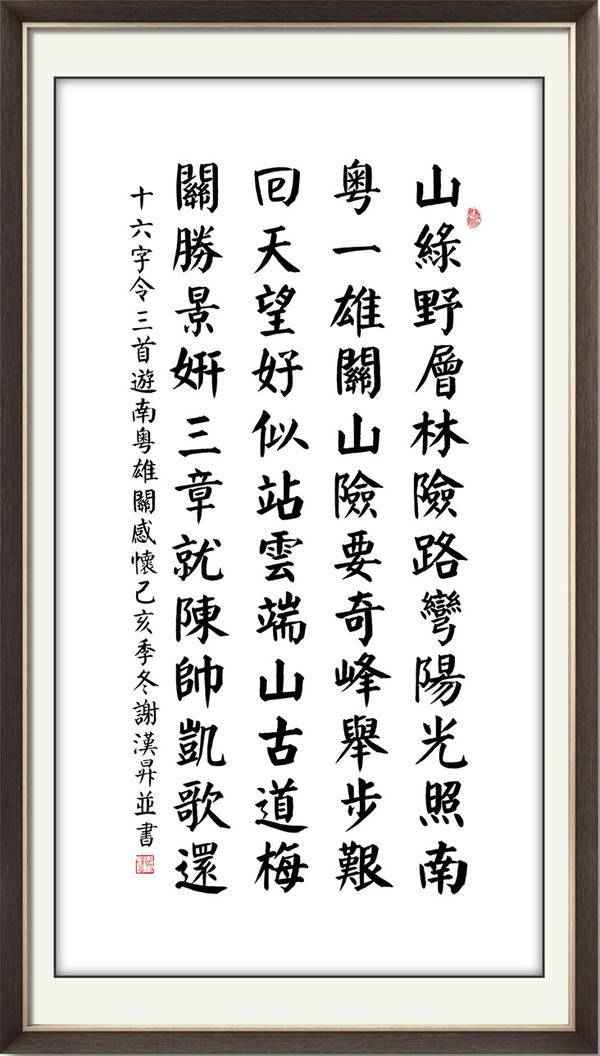 山綠野層林險路彎陽光照南
粵一雄關山險要奇峰舉步艱
回天望好似站雲端山古道梅
關勝景妍三章就陳帥凱歌還
十六字令三首遊南粵雄關感懷己亥季冬謝漢昇並書